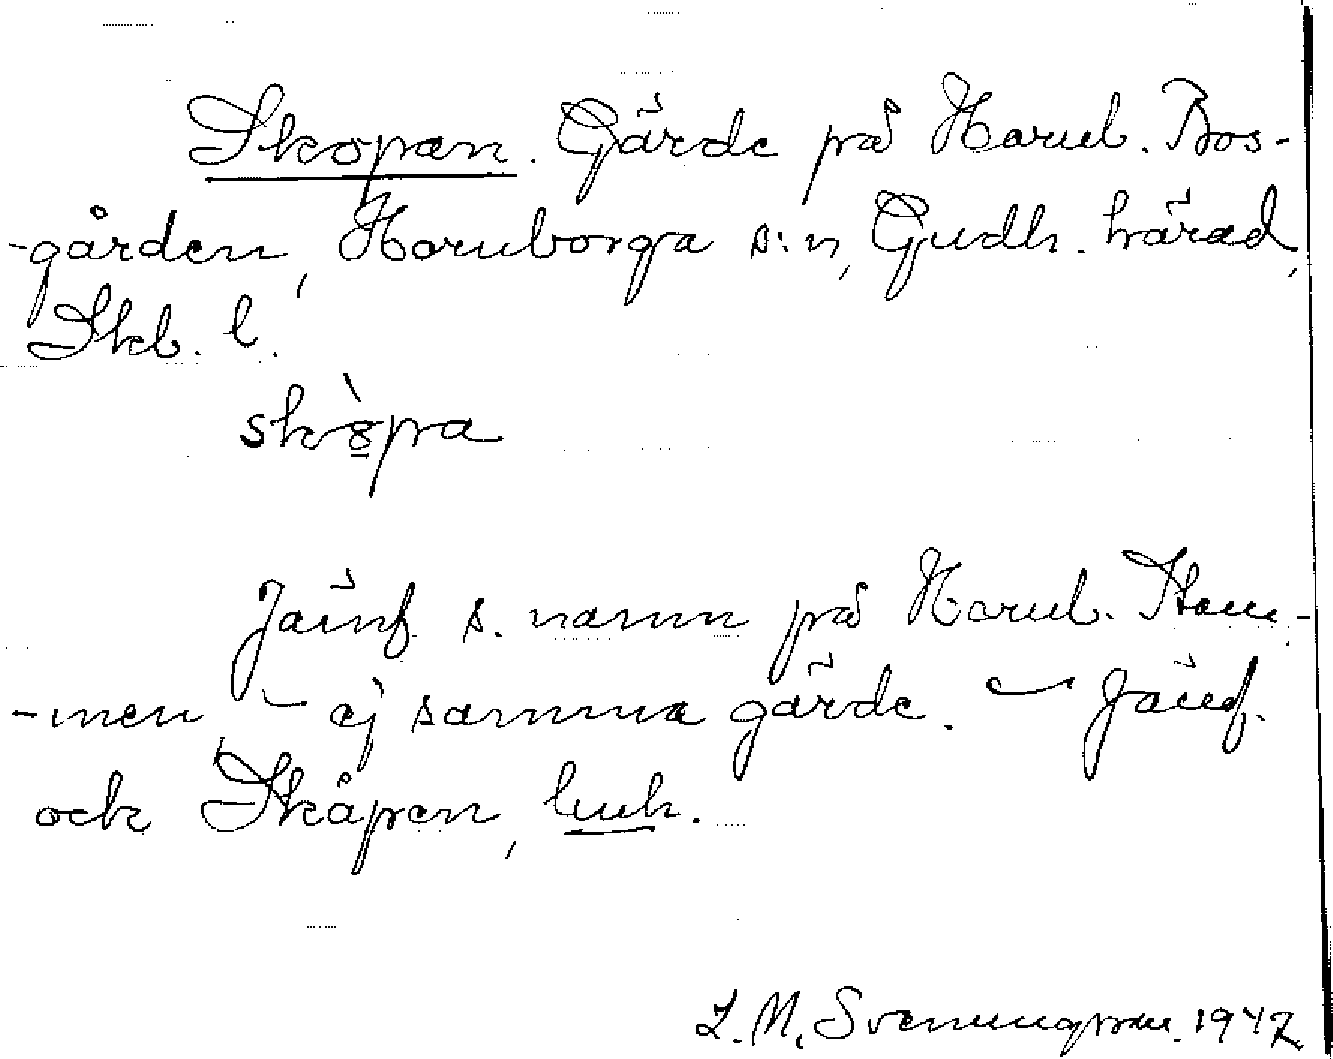 Skopan. Gärde på Hornb. Bos-
-gården, Hornborga s:n, Gudh. härad,
Skb. l.
skòpa
Jämf. s. namn på Hornb. Stom-
-men – ej samma gärde. – Jämf.
ock Skåpen, luck.
L. M. Svenungsson. 1947